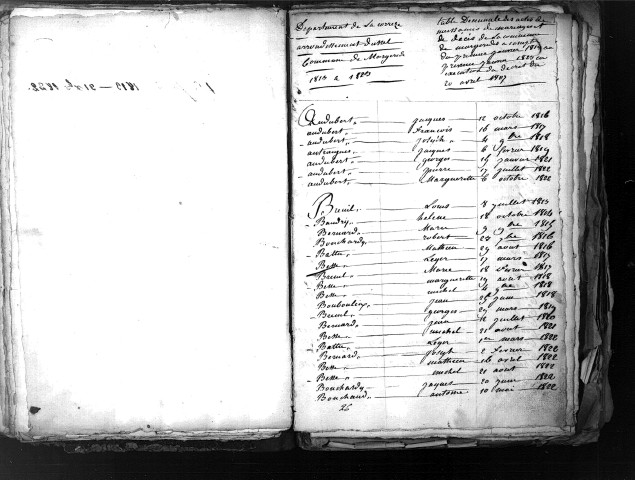 Departement de La correze
arrondissement dussel
Commune de Margerides
1813 a 1823
table Decennale des actes de
naissances de mariages et
de décès de la commune
de margerides a compter
du premier janvier 1813 au
premier janvier 1823 en
execution du decret du
20 avril 1807
Audubert, jacques 12 octobre 1816
audubert, francois 16 mars 1817
audubert, joseph 4 9bre 1818
jacques 6 fevrier 1819
audubert, georges 19 janvier 1821
audubert, pierre 17 juillet 1822
audubert, Marguerette 6 octobre 1822
Breuil, Louis 8 juillet 1813
Baudry, helene 18 octobre 1814
Bernard, Marie 9 9bre 1815
Bouchardy, robert 27 7bre 1816
Batte, Mathieu 29 avout 1816
Bette, Leger 17 mars 1817
Breuil, Marie 18 fevrier 1817
Bette, marguerette 19 avout 1818
Bette, michel 4 9bre 1818
Boubouleix, jean 25 juin 1818
Breuil, georges 27 mars 1819
Bernard, jean 12 juillet 1820
Bette, michel 21 avout 1821
Batte, Leger 1er mars 1822
Bernard, joseph 2 fevrier 1822
Bette, mathieu 16 avril 1822
Bette, michel 21 aout 1822
Bouchardy, jaques 20 juin 1822
Bouchaud, antoine 10 mai 1822
26